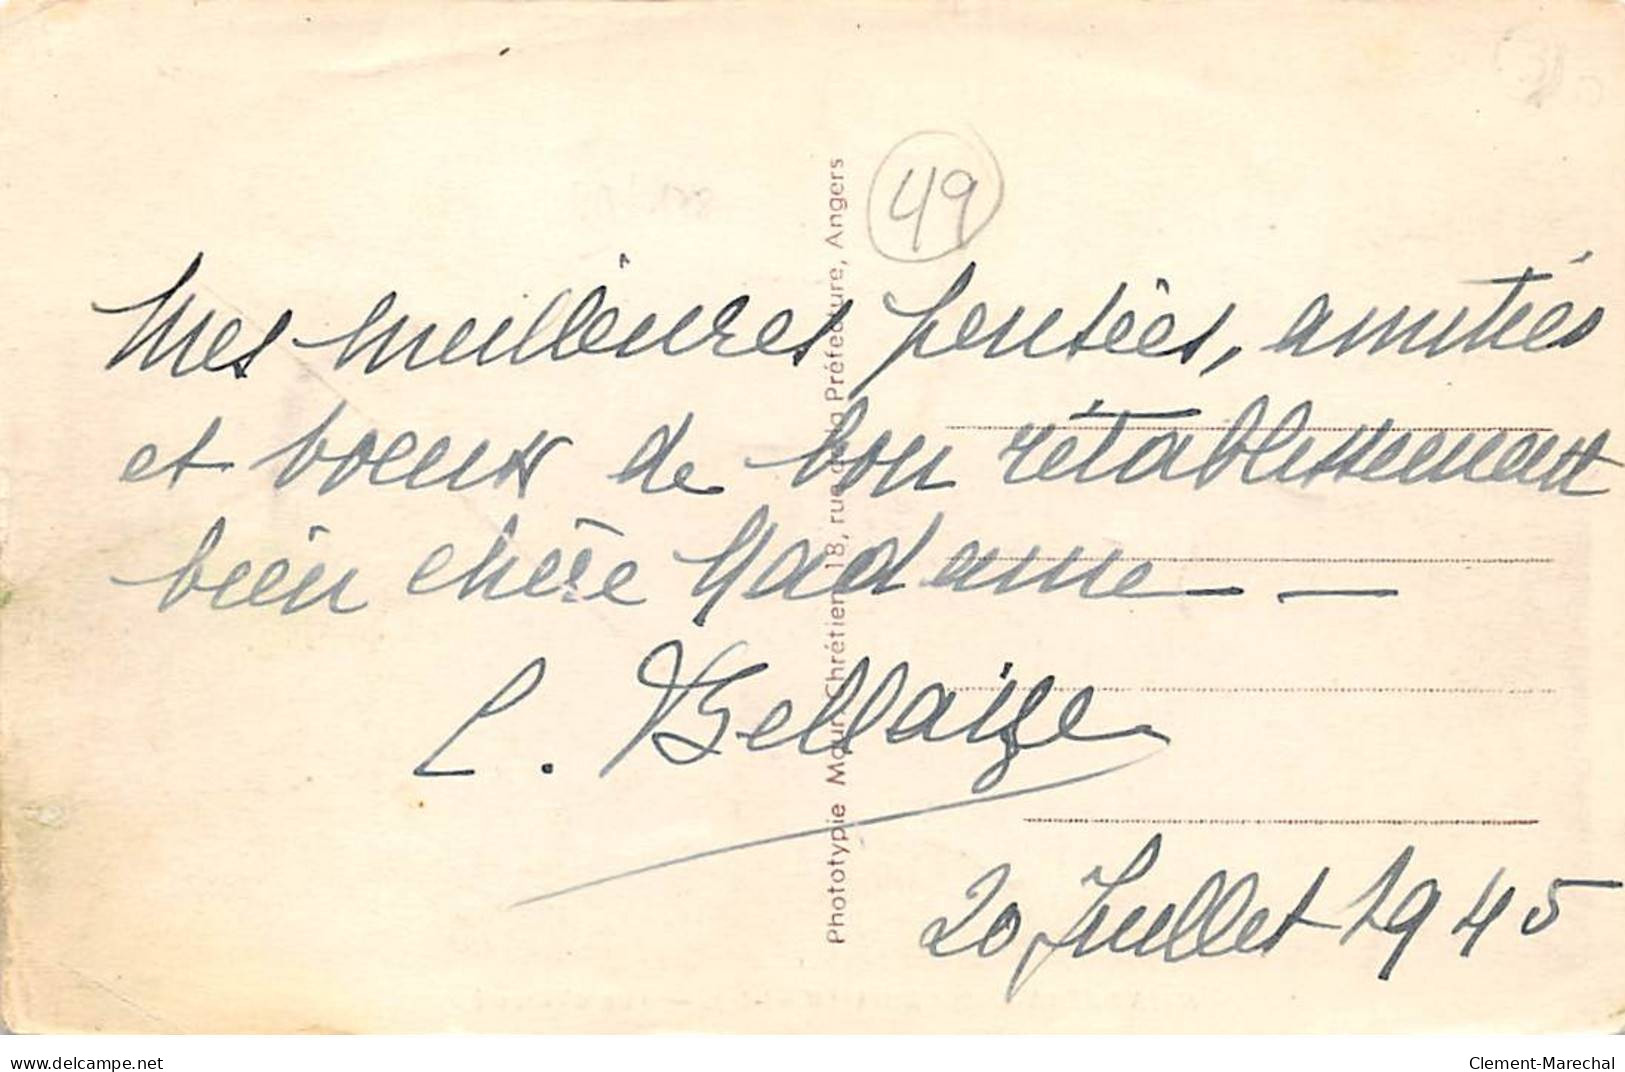 49
Mes meilleures pensées, amitiés
et voeux de bon rétablissement
bien chère Madame — —
L. Bellaize
20 Juillet 1945
Phototypie Maur. Chrétien, 18, rue de la Préfecture, Angers
www.delcampe.net
Clement-Marechal